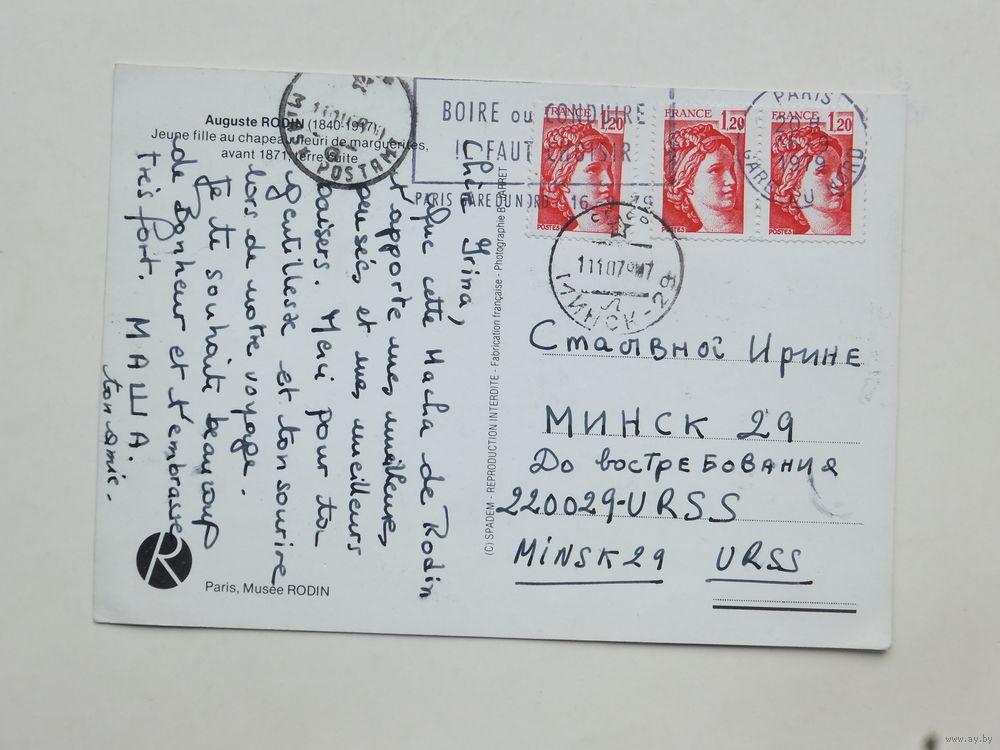 Auguste RODIN (1840-1917)
Jeune fille au chapeau fleuri de marguerites,
avant 1871, terre cuite
Chère Irina,
Que cette Macha de Rodin
t'apporte mes meilleures
pensées et mes meilleurs
baisers. Merci pour ta
gentillesse et ton sourire
lors de notre voyage.
Je te souhaite beaucoup
de Bonheur et t'embrasse
très fort. МАША.
ton amie.
Paris, Musée RODIN
R
(C) SPADEM - REPRODUCTION INTERDITE - Fabrication française - Photographie B. JARRET
MINSK POSTAMT
BOIRE ou CONDUIRE
IL FAUT CHOISIR
PARIS GARE DU NORD 16
PARIS
1979
GARE DU NORD
FRANCE 1,20
POSTES
FRANCE 1,20
POSTES
FRANCE 1,20
POSTES
111079
МИНСК-29
Ирине
МИНСК 29
До востребования
220029-URSS
MINSK 29 URSS
www.ay.by